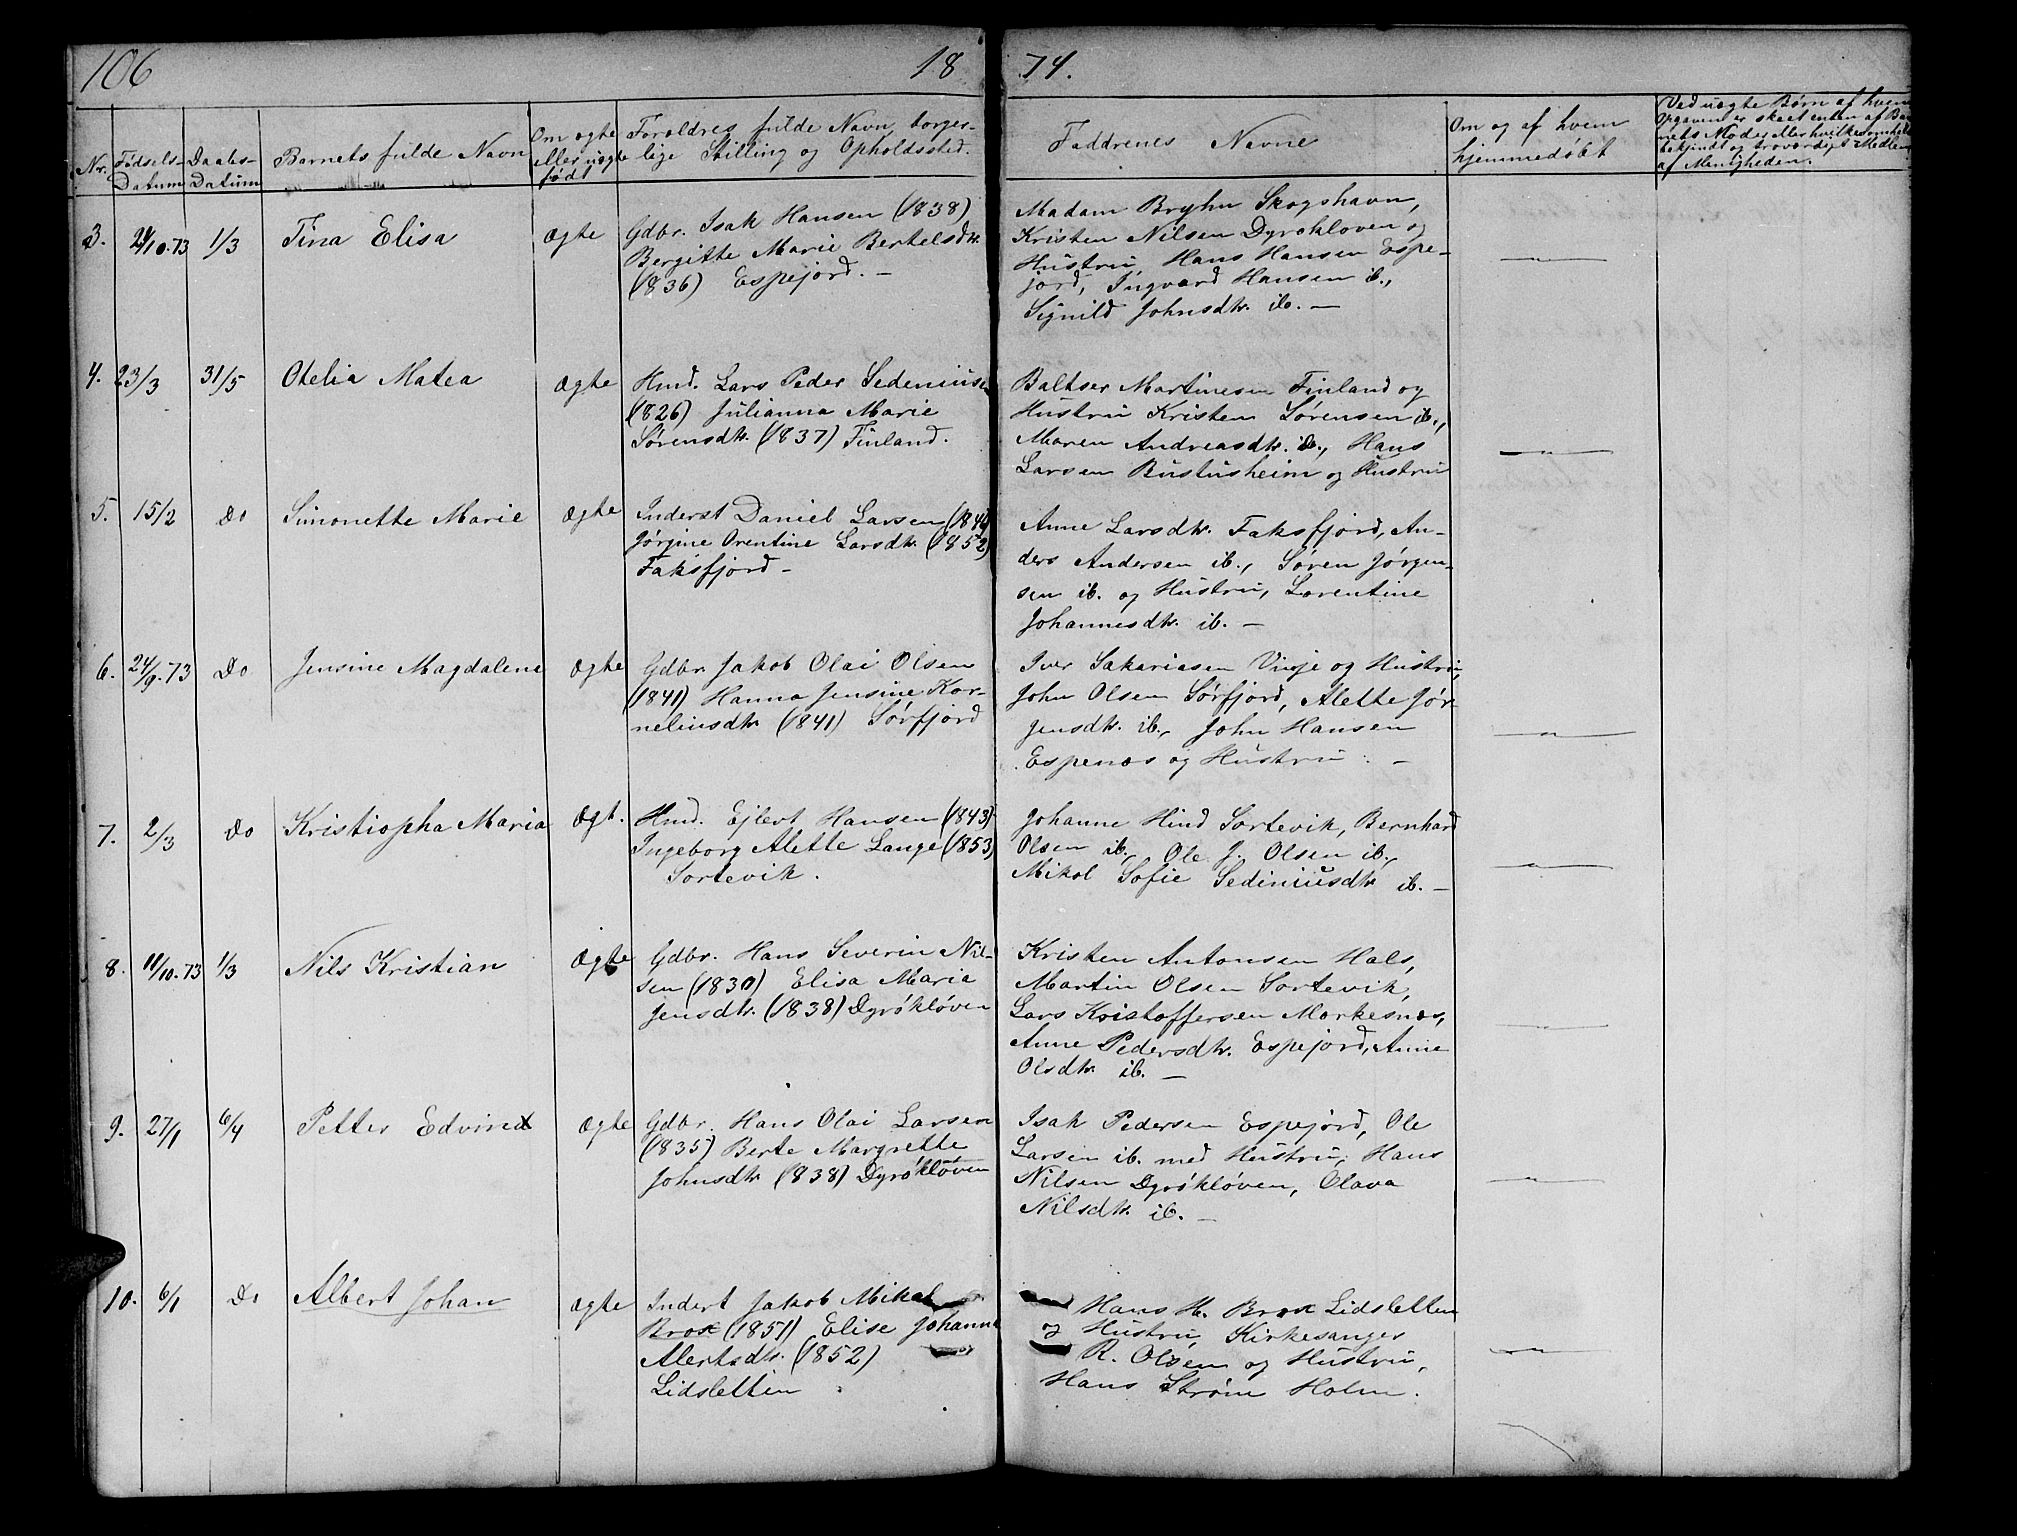 106
18
74.
Nr.
Fødsels-
Datum
Daabs-
Datum
Barnets fulde Navn
Om ægte
eller uægte
født
Forældres fulde Navn, borger-
lige Stilling og Opholdssted.
Faddrenes Navne
Om og af hvem
hjemmedøbt
Ved uægte Børn af hvem
Opgaven er skeet enten af Bar
nets Moder eller hvilkesomhelst
bekjendt og troværdigt Medlem
af Menigheden.
3. 21/10.73 1/3 Tina Elisa ægte
Gdbr. Isak Hansen (1838)
Bergitte Marie Bertelsdtr.
(1836) Espejord. —
Madam Bryhn Skogshavn,
Kristen Nilsen Dyrøkløven og
Hustru, Hans Hansen Espe-
jord, Ingvard Hansen ib.,
Signild Johnsdtr. ib. —
— " —
4. 23/3 31/5 Otelia Matea ægte
Hmd. Lars Peder Sedeniusen
(1826) Julianna Marie
Sørensdtr. (1837) Finland.
Baltser Martinesen Finland og
Hustru Kristen Sørensen ib.,
Maren Andreasdtr. ib., Hans
Larsen Bustusheim og Hustru
— " —
5. 15/2 Do Simonette Marie ægte
Inderst Daniel Larsen
Jørgine Orentine Larsdtr. (1852)
Faksfjord —
Anne Larsdtr. Faksfjord, An-
ders Andersen ib., Søren Jørgen-
sen ib. og Hustru, Lorentine
Johannesdtr. ib. —
6. 24/9.73 Do Jensine Magdalena ægte
Gdbr. Jakob Olai Olsen
(1841) Hanna Jensine Kor-
neliusdtr. (1841) Sørfjord
Iver Sakariasen Vinje og Hustru,
John Olsen Sørfjord, Alette Jør-
gensdtr. ib., John Hansen
Espenæs og Hustru. —
— " —
7. 2/3 Do Kristiopha Maria Ægt.
Hmd. Ejlert Hansen (1843)
Ingeborg Alette Lange (1853)
Sortevik.
Johanne Hind Sortevik, Bernhard
Olsen ib., Ole J. Olsen ib.,
Mikol Sofie Sediniusdtr ib. —
— " —
8. 11/10.73 1/3 Nils Kristian Ægte
Gdbr. Hans Severin Nil-
sen (1830) Elisa Maria
Jensdtr. (1838) Dyrøkløven
Kristen Antonsen Hals,
Martin Olsen Sortevik,
Lars Kristoffersen Mørkesnæs,
Anne Pedersdtr. Espejord, Anne
Olsdtr. ib. —
— " —
9. 27/1 6/4 Petter Edvind Ægte
Gdbr. Hans Olai Larsen
(1835) Berte Margrette
Johnsdtr. (1838) Dyrøkløven
Isak Pedersen Espejord, Ole
Larsen ib. med Hustru, Hans
Nilsen Dyrøkløven, Olava
Nilsdtr. ib. —
— " —
10. 6/1 Do Albert Johan ægte
Inderst Jakob Mikal
Brox (1851) Elise Johanne
Alertsdtr. (1852)
Lidsletten
Hans H. Brox Lidsletten
og Hustru, Kirkesanger
R. Olsen og Hustru,
Hans Strøm Holm.
— " —